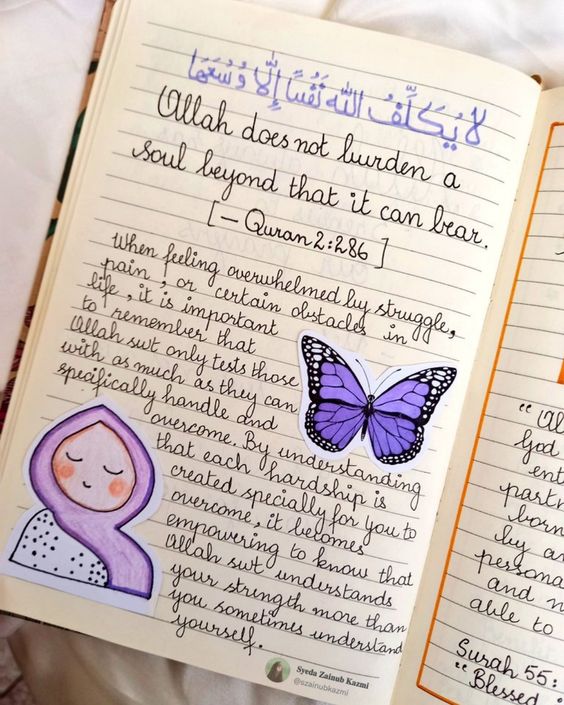 لا يُكَلِّفُ اللهُ نَفْسًا إِلَّا وُسْعَهَا
Allah does not burden a
soul beyond that it can bear.
[— Quran 2:286 ]
When feeling overwhelmed by struggle,
pain, or certain obstacles in
life, it is important
to remember that
Allah swt only tests those
with as much as they can
specifically handle and
overcome. By understanding
that each hardship is
created specially for you to
overcome, it becomes
empowering to know that
Allah swt understands
your strength more than
you sometimes understand
yourself.
Syeda Zainub Kazmi
@szainubkazmi
"Al
God
ent
partn
born
by a
persona
and n
able to
Surah 55:
"Blessed